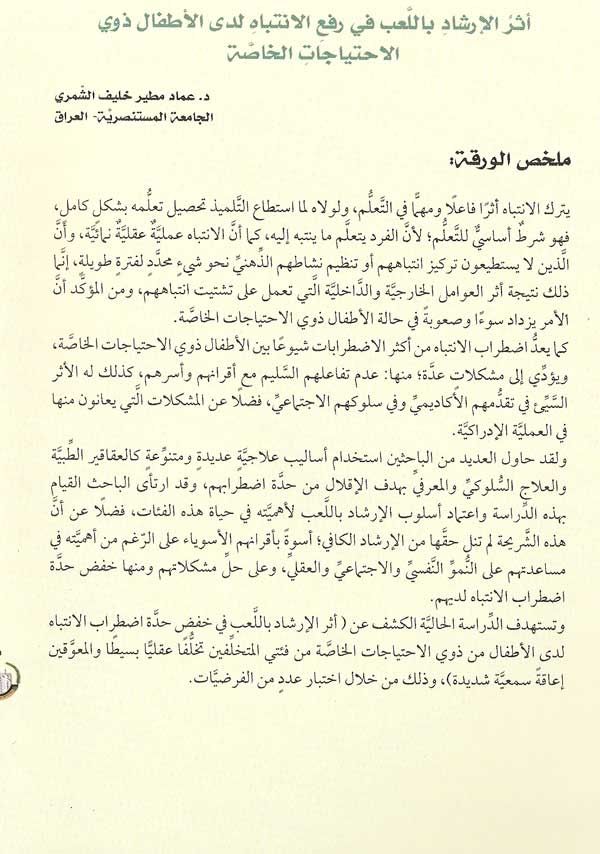 أثرُ الإرشادِ باللَّعب في رفعِ الانتباهِ لدى الأطفال ذوي
الاحتياجاتِ الخاصَّة
د. عماد مطير خليف الشَّمري
الجامعة المستنصريَّة- العراق
ملخص الورقة:
يترك الانتباه أثرًا فاعلًا ومهمًّا في التَّعلُّم، ولولاه لما استطاع التَّلميذ تحصيل تعلُّمه بشكلٍ كامل،
فهو شرطٌ أساسيٌّ للتَّعلُّم؛ لأنَّ الفرد يتعلَّم ما ينتبه إليه، كما أنَّ الانتباه عمليَّةٌ عقليَّةٌ نمائيَّة، وأنَّ
الَّذين لا يستطيعون تركيز انتباههم أو تنظيم نشاطهم الذِّهنيِّ نحو شيءٍ محدَّد لفترةٍ طويلةٍ، إنَّما
ذلك نتيجة أثر العوامل الخارجيَّة والدَّاخليَّة الَّتي تعمل على تشتيت انتباههم، ومن المؤكَّد أنَّ
الأمر يزداد سوءًا وصعوبةً في حالة الأطفال ذوي الاحتياجات الخاصَّة.
كما يعدُّ اضطراب الانتباه من أكثر الاضطرابات شيوعًا بين الأطفال ذوي الاحتياجات الخاصَّة،
ويؤدِّي إلى مشكلاتٍ عدَّة؛ منها: عدم تفاعلهم السَّليم مع أقرانهم وأسرهم، كذلك له الأثر
السَّيِّئ في تقدُّمهم الأكاديميِّ وفي سلوكهم الاجتماعيِّ، فضلًا عن المشكلات الَّتي يعانون منها
في العمليَّة الإدراكيَّة.
ولقد حاول العديد من الباحثين استخدام أساليب علاجيَّةٍ عديدةٍ ومتنوِّعةٍ كالعقاقير الطِّبيَّة
والعلاج السُّلوكيِّ والمعرفيِّ بهدف الإقلال من حدَّة اضطرابهم، وقد ارتأى الباحث القيام
بهذه الدِّراسة واعتماد أسلوب الإرشاد باللَّعب لأهميَّته في حياة هذه الفئات، فضلًا عن أنَّ
هذه الشَّريحة لم تنل حقَّها من الإرشاد الكافي؛ أسوةً بأقرانهم الأسوياء على الرَّغم من أهميَّته في
مساعدتهم على النُّموِّ النَّفسيِّ والاجتماعيِّ والعقليِّ، وعلى حلِّ مشكلاتهم ومنها خفض حدَّة
اضطراب الانتباه لديهم.
وتستهدف الدِّراسة الحاليَّة الكشف عن ( أثر الإرشاد باللَّعب في خفض حدَّة اضطراب الانتباه
لدى الأطفال من ذوي الاحتياجات الخاصَّة من فئتي المتخلِّفين تخلُّفًا عقليًّا بسيطًا والمعوَّقين
إعاقةً سمعيَّة شديدة)، وذلك من خلال اختبار عددٍ من الفرضيَّات.